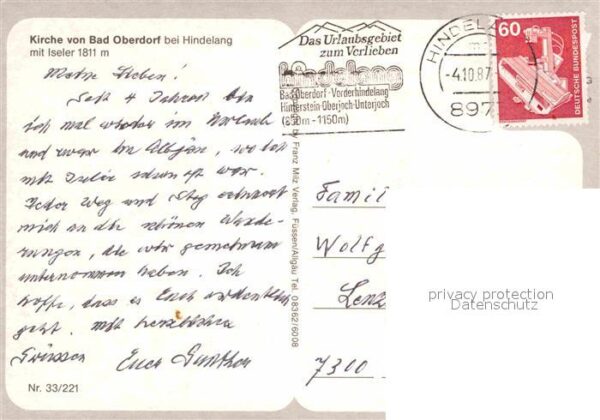 Kirche von Bad Oberdorf bei Hindelang
mit Iseler 1811 m
Meine Lieben!
Seit 4 Jahren bin
ich mal wieder im Urlaub
und zwar im Allgäu, wo
mit schon oft war.
Jeder Weg und Steg erinnert
mich an die schönen Wande-
rungen, die wir gemeinsam
unternommen haben. Ich
hoffe, dass es Euch ordentlich
geht. Mit herzlichen
Grüssen Euer Günther
Nr. 33/221
Das Urlaubsgebiet
zum Verlieben
hindelang
Bad Oberdorf-Vorderhindelang
Hinterstein-Oberjoch-Unterjoch
(850m-1150m)
HINDELA
-4.10.87
897
60
DEUTSCHE BUNDESPOST
by Franz Milz Verlag, Füssen/Allgäu Tel. 08362/6008
Famil
Wolfg
Lenz
7300
privacy protection
Datenschutz